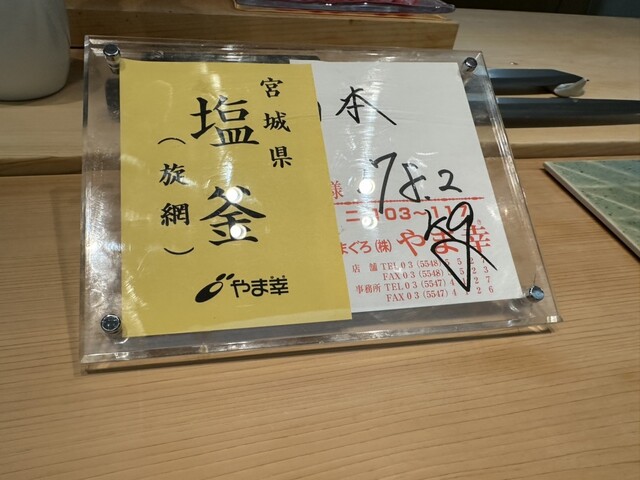 宮城県
塩釜
(旋網)
やま幸
本
様
78.2
二103~117
まぐろ(株) やま幸
店舗 TEL03(5548)
FAX03(5548) 523
事務所 TEL03(5547)4127
FAX03(5547)4126